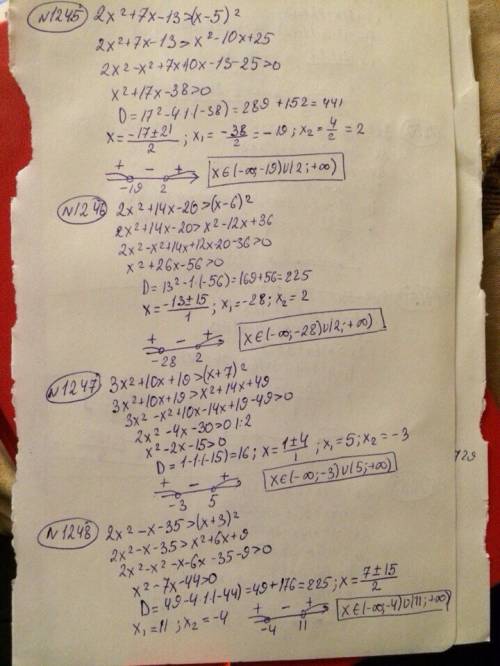 N1245 2x²+7x-13>(x-5)²
2x²+7x-13>x²-10x+25
2x²-x²+7x10x-13-25>0
x²+17x-38>0
D=17²-4·1·(-38)=289+152=441
x=(-17±21)/2; x₁=-38/2=-19; x₂=4/2=2
+ - +
-19 2
x∈(-∞;-19)∪(2;+∞)
N1246 2x²+14x-20>(x-6)²
2x²+14x-20>x²-12x+36
2x²-x²+14x+12x-20-36>0
x²+26x-56>0
D=13²-1·(-56)=169+56=225
x=(-13±15)/1; x₁=-28; x₂=2
+ - +
-28 2
x∈(-∞;-28)∪(2;+∞)
N1247 3x²+10x+19>(x+7)²
3x²+10x+19>x²+14x+49
3x²-x²+10x-14x+19-49>0
2x²-4x-30>0 |:2
x²-2x-15>0
D=1-1·(-15)=16; x=(1±4)/1; x₁=5; x₂=-3
+ - +
-3 5
x∈(-∞;-3)∪(5;+∞)
N1248 2x²-x-35>(x+3)²
2x²-x-35>x²+6x+9
2x²-x²-x-6x-35-9>0
x²-7x-44>0
D=49-4·1·(-44)=49+176=225; x=(7±15)/2
x₁=11; x₂=-4
+ - +
-4 11
x∈(-∞;-4)∪(11;+∞)